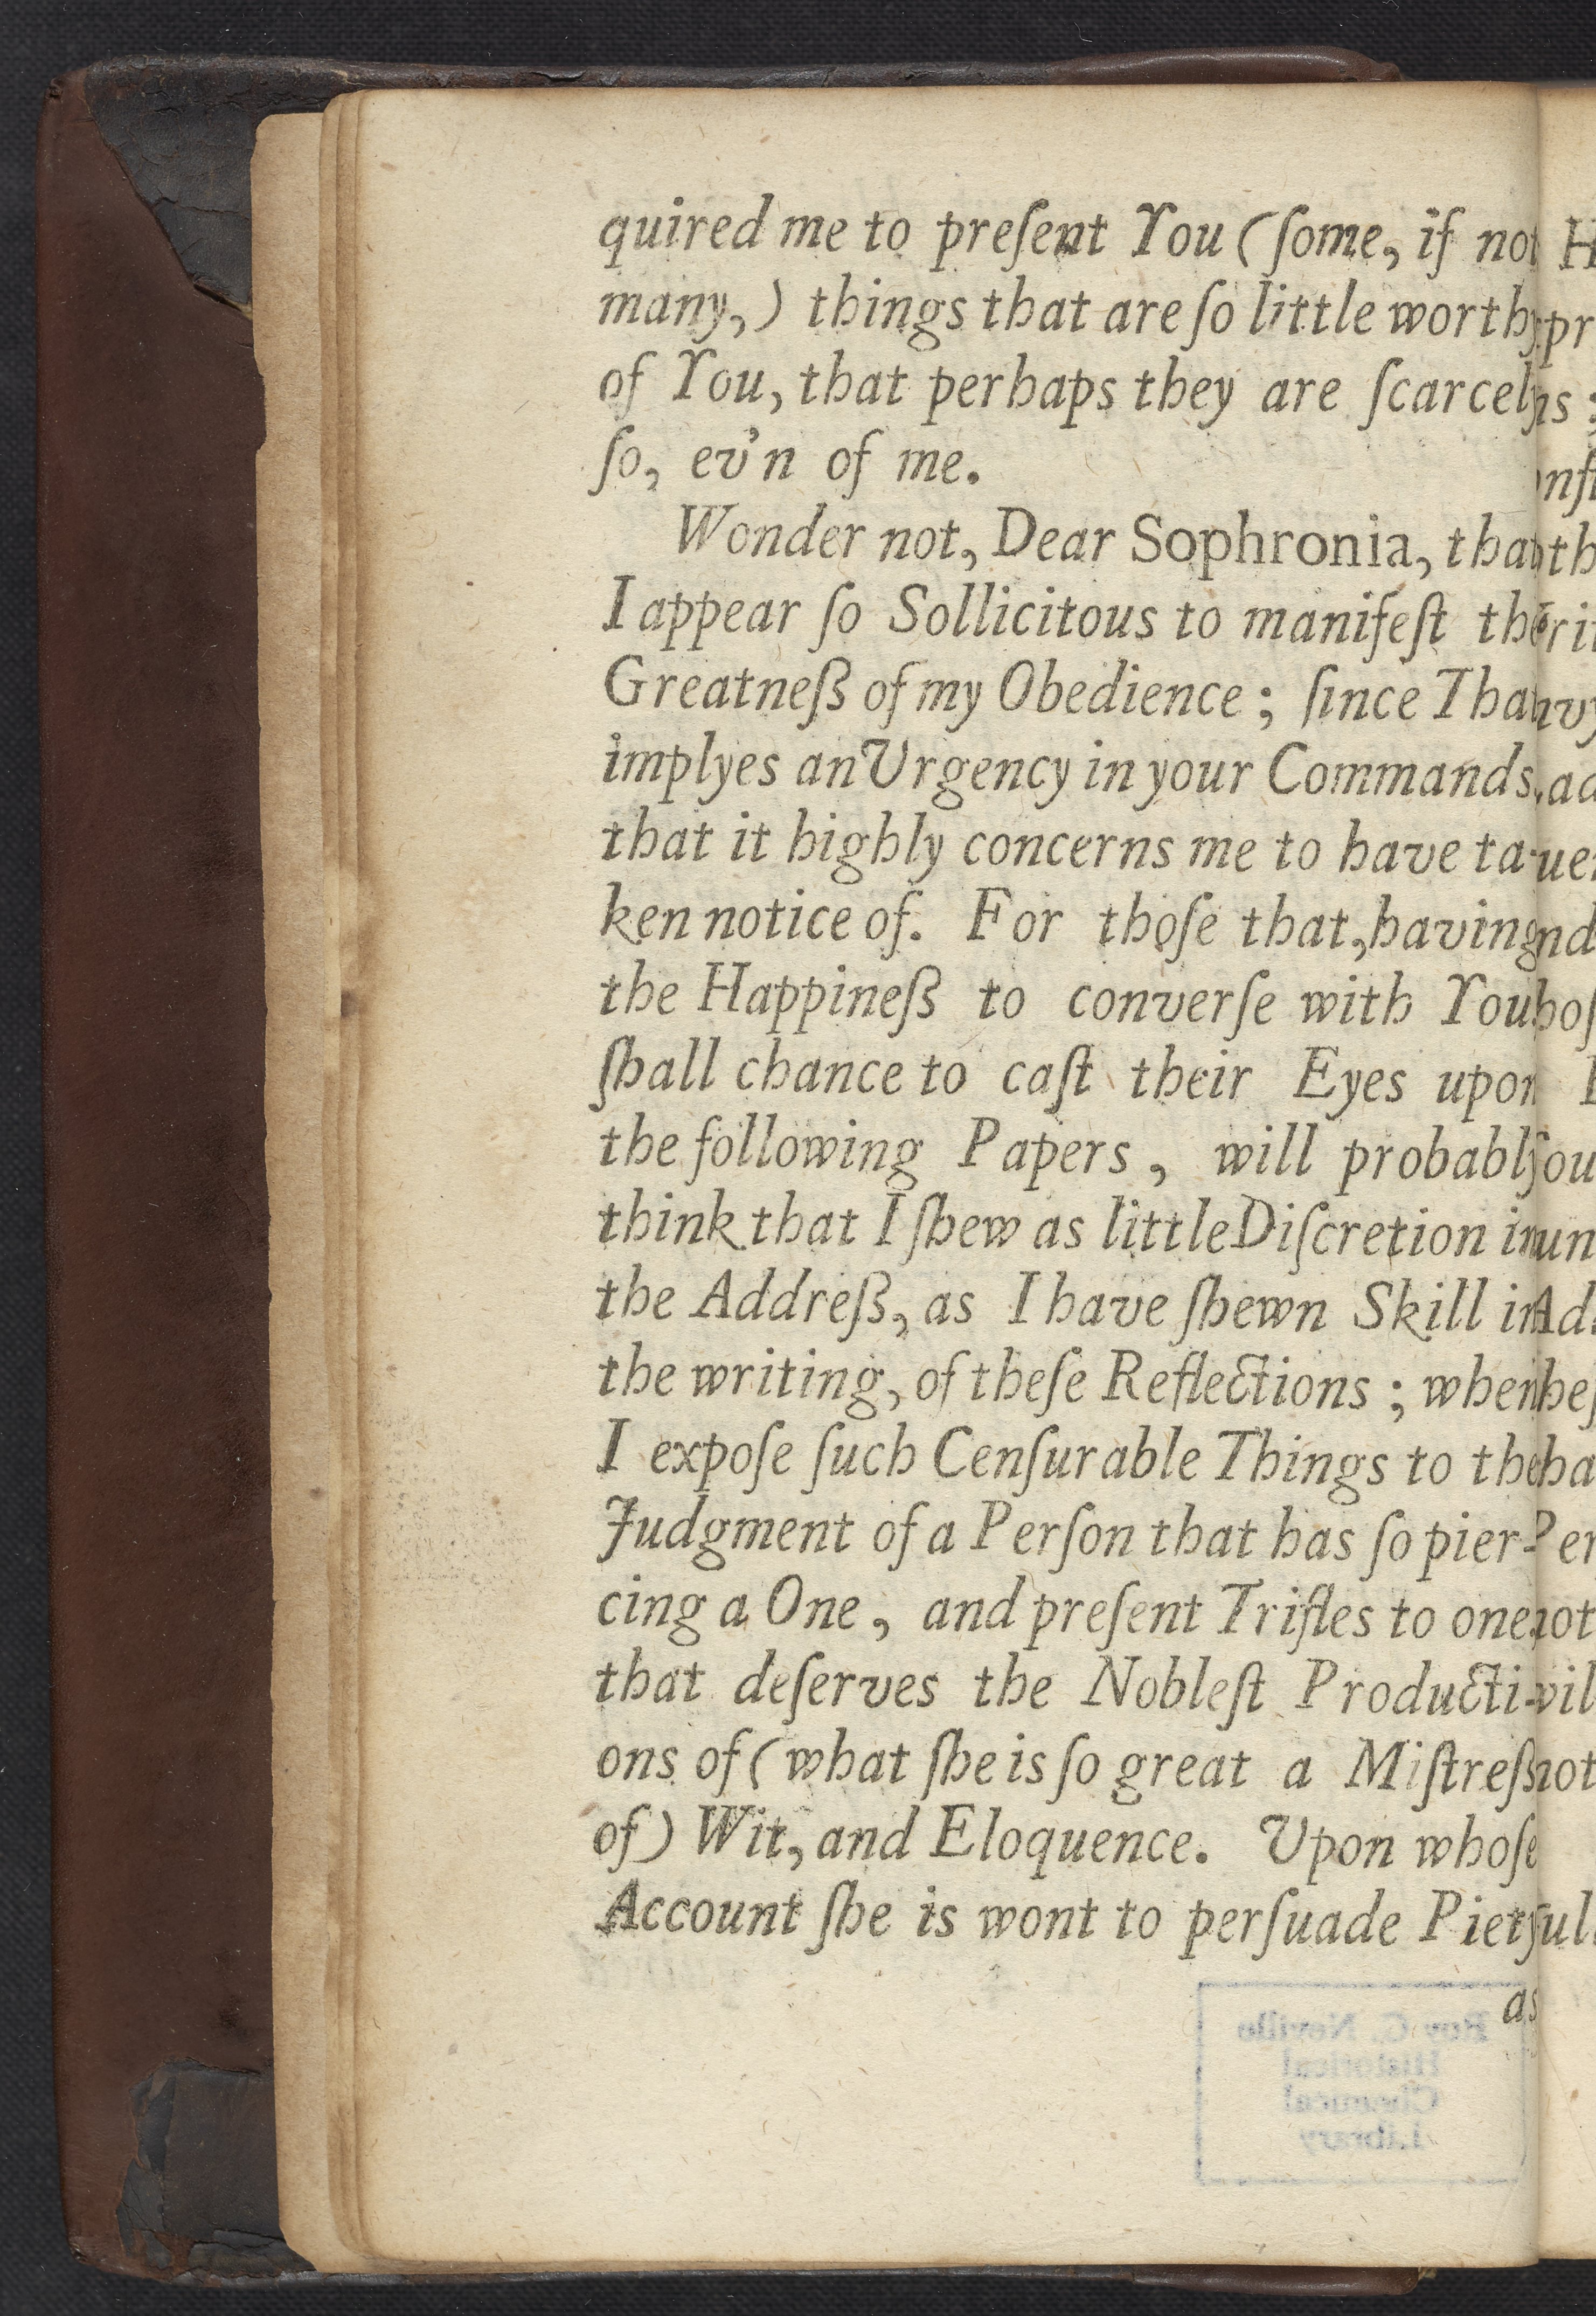 quired me to preſent You (ſome, if not
many,) things that are ſo little worthy
of You, that perhaps they are ſcarcely
ſo, ev'n of me.
Wonder not, Dear Sophronia, that
I appear ſo Sollicitous to manifeſt the
Greatneſs of my Obedience; ſince That
implyes an Urgency in your Commands,
that it highly concerns me to have ta-
ken notice of. For thoſe that, having
the Happineſs to converſe with You
ſhall chance to caſt their Eyes upon
the following Papers, will probably
think that I ſhew as little Diſcretion in
the Addreſs, as I have ſhewn Skill in
the writing, of theſe Reflections; when
I expoſe ſuch Cenſurable Things to the
Judgment of a Perſon that has ſo pier-
cing a One, and preſent Trifles to one
that deſerves the Nobleſt Producti-
ons of (what ſhe is ſo great a Miſtreſs
of) Wit, and Eloquence. Upon whoſe
Account ſhe is wont to perſuade Piety
as
Roy G. Neville
Historical
Chemical
Library